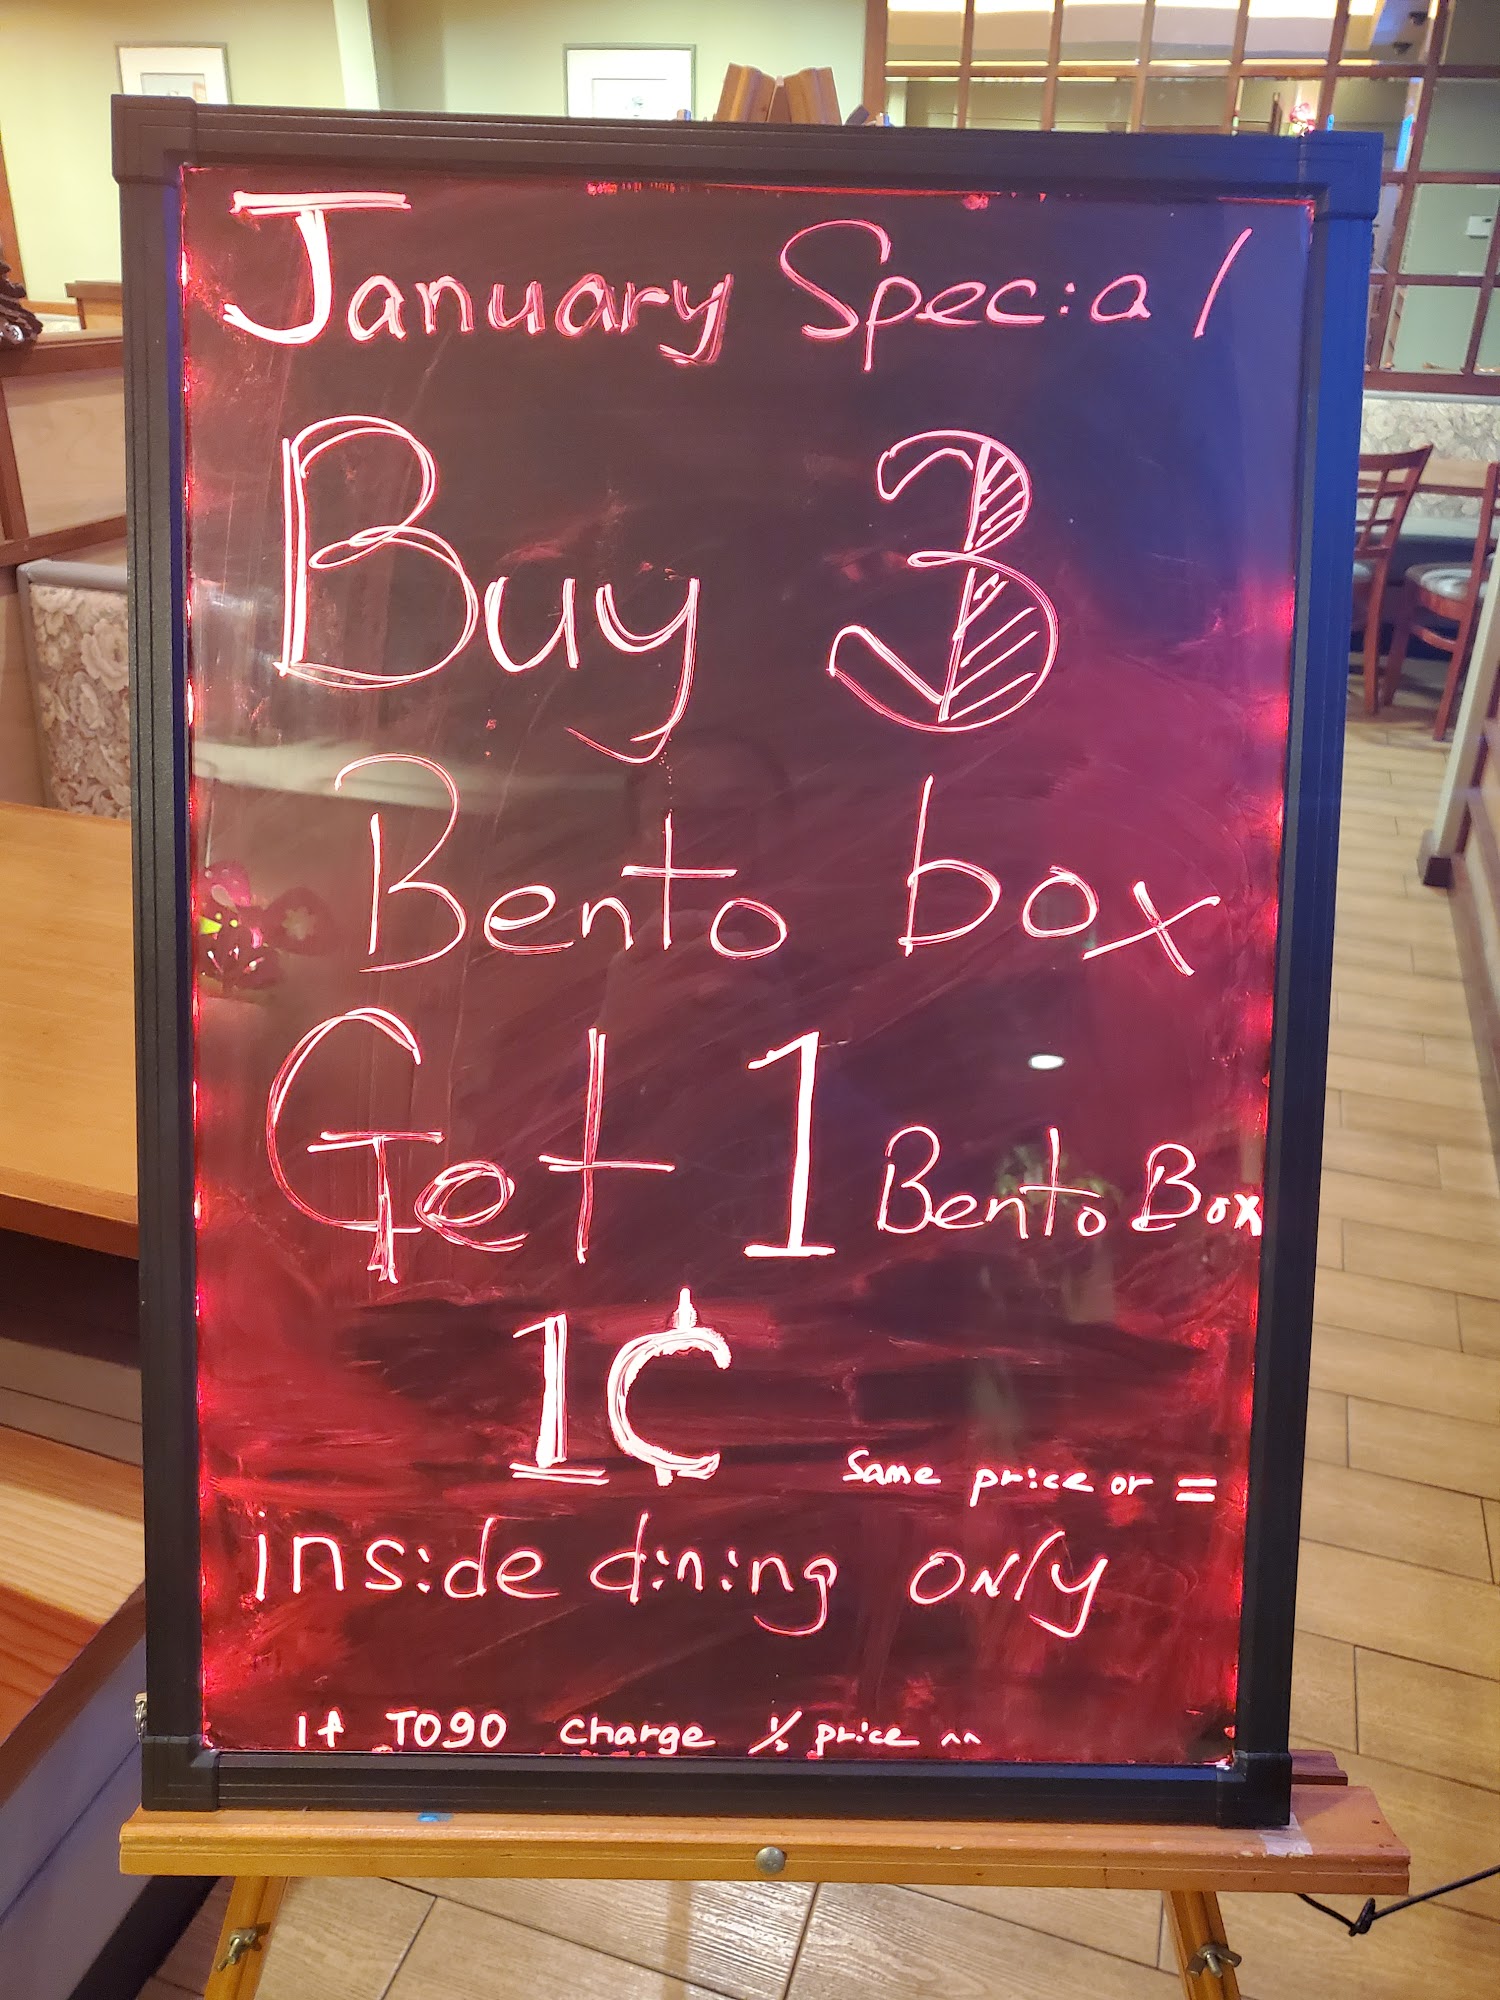 January Special
Buy 3
Bento box
Get 1 Bento Box
1¢
Same price or =
inside dining only
If TOGO charge ½ price ^^